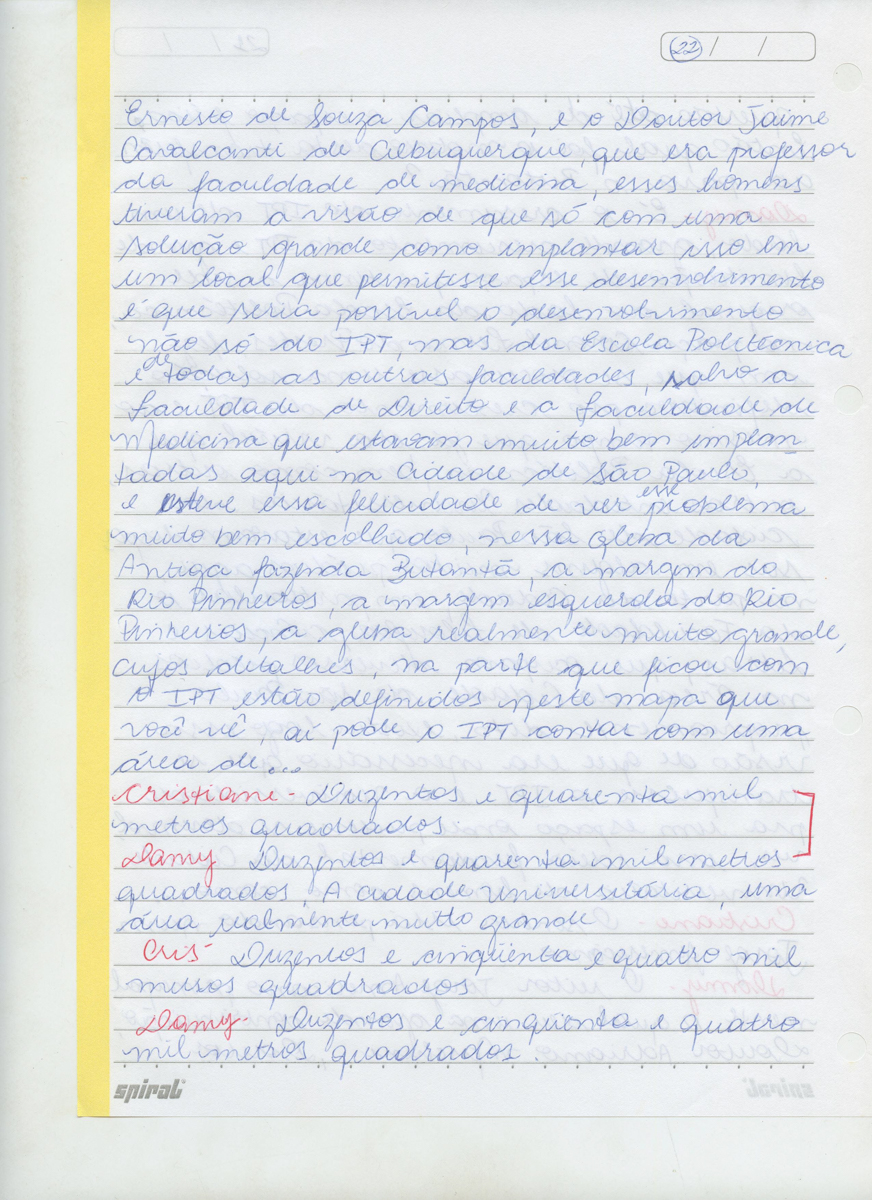 22 / /
Ernesto de Souza Campos, e o Doutor Jaime
Cavalcanti de Albuquerque, que era professor
da faculdade de medicina, esses homens
tiveram a visão de que só com uma
solução grande como implantar isso em
um local que permitisse esse desenvolvimento
é que seria possível o desenvolvimento
não só do IPT, mas da Escola Politecnica
e de todas as outras faculdades, salvo a
faculdade de Direito e a faculdade de
Medicina que estavam muito bem implan
tadas aqui na Cidade de São Paulo,
e esteve essa felicidade de ver esse problema
muito bem escolhido, nessa gleba da
Antiga fazenda Butantã, a margem do
Rio Pinheiros, a margem esquerda do Rio
Pinheiros, a gleba realmente muito grande,
cujos detalhes, na parte que ficou com
o IPT estão definidos neste mapa que
você vê, aí pode o IPT contar com uma
área de...
Cristiane - Duzentos e quarenta mil
metros quadrados.
Damy Duzentos e quarenta mil metros
quadrados. A cidade universitária, uma
área realmente muito grande
Cris - Duzentos e cinqüenta e quatro mil
metros quadrados
Damy - Duzentos e cinqüenta e quatro
mil metros quadrados.
spiral